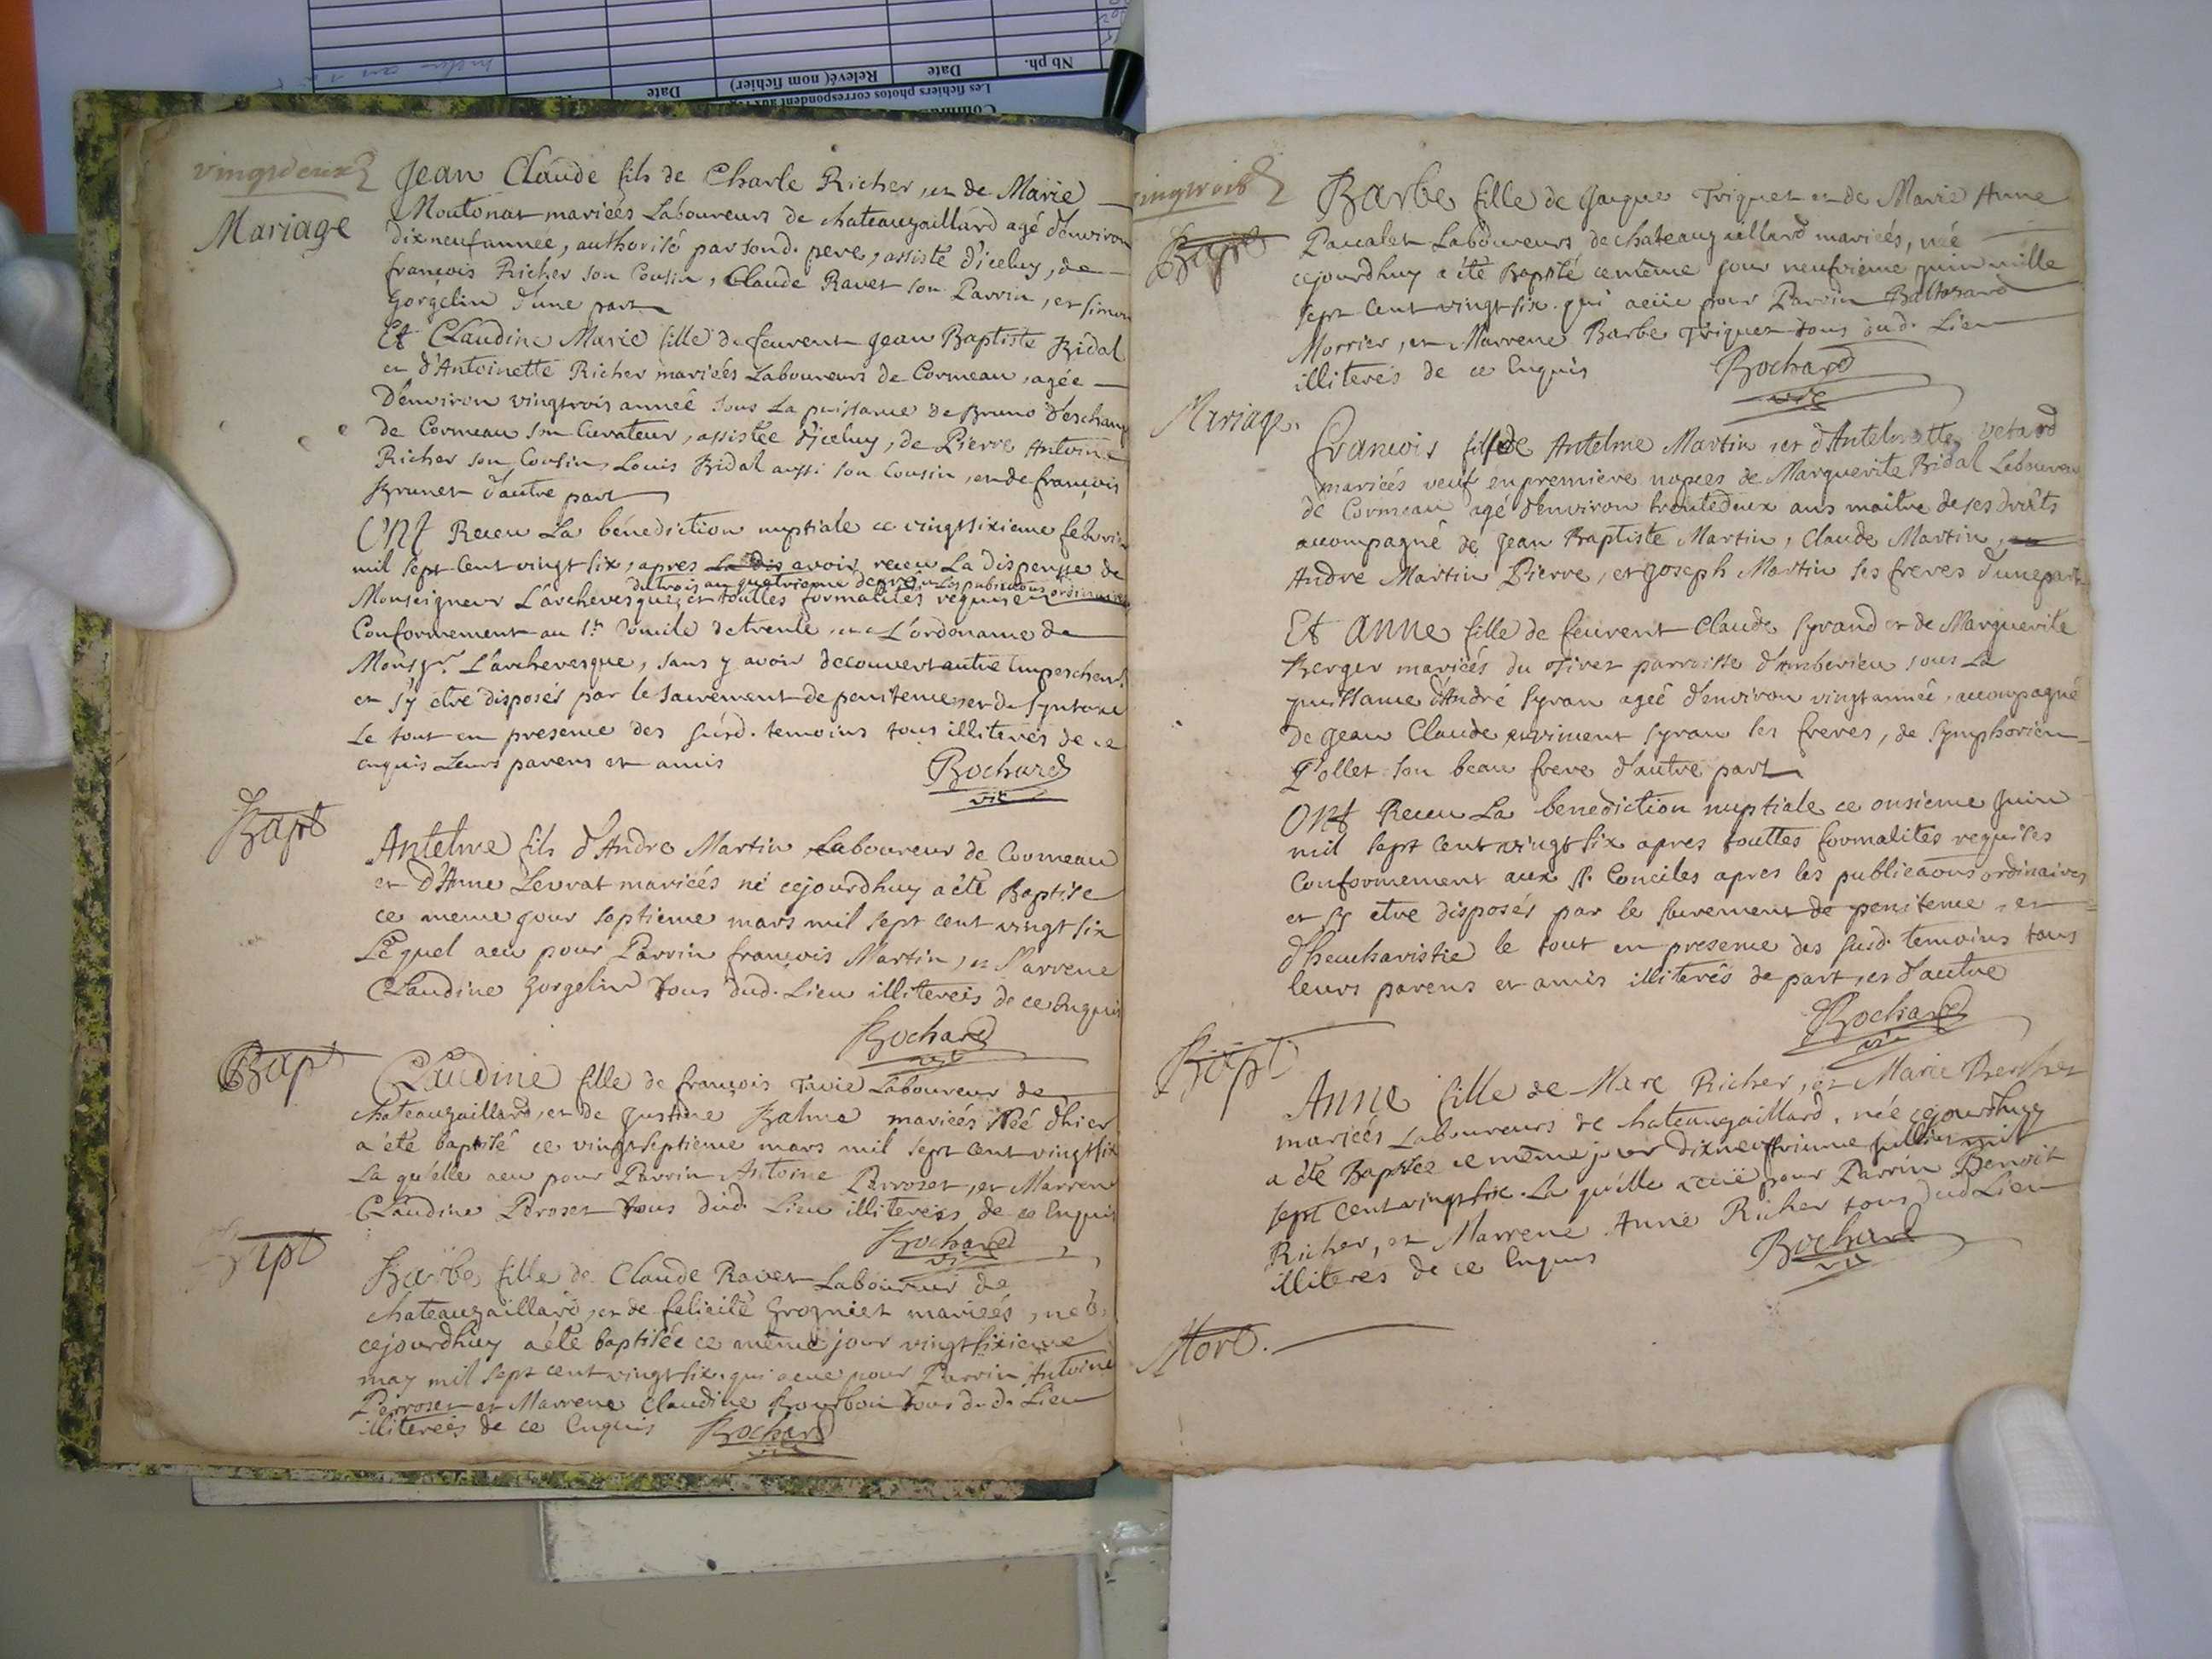 vingtdeux
Mariage
Jean Claude fils de Charle Richer, et de Marie
Moutonat mariéés Laboureurs de chateaugaillard agé d'environ
dixneuf année, authorisé par sond. pere, assisté d'iceluy, de
françois Richer son Cousin, Claude Ravet son Parrin, et simon
Gorgelin d'une part
Et Claudine Marie fille de feuvent Jean Baptiste Bidal
et d'Antoinette Richer mariéés Laboureurs de Cormeau, agée
d'environ vingtrois année sous La puissance de Bruno deschamp
de Cormeau son Curateur, assistée d'iceluy, de Pierre Antoine
Richer son Cousin, Louis Bidal aussi son Cousin, et de françois
Brunet d'autre part
Ont Receu La bénédiction nuptiale ce vingtsixieme febvrier
mil sept cent vingt six, apres La dis avoir receu La dispensse de
du trois au quatrieme degré, Les publications ordinaires
Monseigneur L'archevesque, et touttes formalités requises
Conformement au St. Concile de trente, et a L'ordonance de
Monsgr. L'archevesque, sans y avoir decouvert autre Empeschemt.
et s'y etre disposés par le sacrement de penitence, et de Syntaxe
Le tout en presence des susd. temoins tous illiterés de ce
enquis Leurs parens et amis
Rochard
vic
Bapt
Antelme fils d'Andre Martin Laboureur de Cormeau
et d'Anne Levrat mariéés né cejourdhuy a été Baptise
ce meme jour septieme mars mil sept cent vingt six
Lequel a eu pour Parrin françois Martin, et Marrene
Claudine Gorgelin tous dud. Lieu illiterés de ce enquis
Rochard
vic
Bapt
Claudine fille de françois Tavie Laboureur de
chateaugaillard, et de Justine Balme mariéés Néé d'hier
a été baptisé ce vingtseptieme mars mil sept cent vingtsix
La qu'elle a eu pour Parrin Antoine Perroset, et Marrene
Claudine Peroset tous dud. Lieu illiterés de ce Enquis
Rochard
vic
Bapt
Barbe fille de Claude Ravet Laboureur de
chateaugaillard, et de felicité Grogniet mariéés, néé
cejourdhuy a été baptisée ce même jour vingtsixieme
may mil sept cent vingt six, qui a eue pour Parrin Antoine
Perroset et Marrene Claudine Bourbon tous dud. Lieu
illiterés de ce Enquis
Rochard
vic
vingtrois
Bapt
Barbe fille de Jaque Triquet et de Marie Anne
Pacalet Laboureurs de chateaugaillard mariéés, néé
cejourdhuy a été Baptisé ce même jour neufvieme juin mille
sept cent vingt six. qui a eüe pour Parrin Baltosard
Morrier, et Marrene Barbe Triquet tous dud. Lieu
illiterés de ce Enquis
Rochard
vic
Mariage.
françois fils de Antelme Martin, et d'Antelmette Vetard
mariéés veuf en premiere nopces de Marguerite Bidal Laboureur
de Cormeau agé d'environ trentedeux ans maitre de ses droits
accompagné de Jean Baptiste Martin, Claude Martin,
Andre Martin Pierre, et Joseph Martin ses freres d'une part
Et Anne fille de feuvent Claude Syrand et de Marguerite
Berger mariéés du Tiret parroisse d'Amberieu sous La
puissance d'André Syran ageé d'environ vingt année, accompagné
de Jean Claude, et vincent Syran ses freres, de Symphorien
Pollet son beau frere d'autre part
Ont Receu La benediction nuptiale ce onsieme Juin
mil sept cent vingt six apres touttes formalites requises
Conformement aux St. Conciles apres les publicaons ordinaires
et s'y etre disposés par le sacrement de penitence, et
d'heucharistie le tout en presence des susd. temoins tous
leurs parens et amis illiterés de part, et d'autre
Rochard
vic
Bapt
Anne fille de Marc Richer, et Marie Berthet
mariéés Laboureurs de chateaugaillard. née cejourdhuy
a été Baptisée ce même jour dixneufvieme juillet mil
sept cent vingt six. La qu'elle a eüe pour Parrin Benoit
Richer, et Marrene Anne Richer tous dud Lieu
illiterés de ce Enquis
Rochard
vic
Mort.
Nb ph.
Date
Relevé( nom fichier)
Date
Les fichiers photos correspondent aux